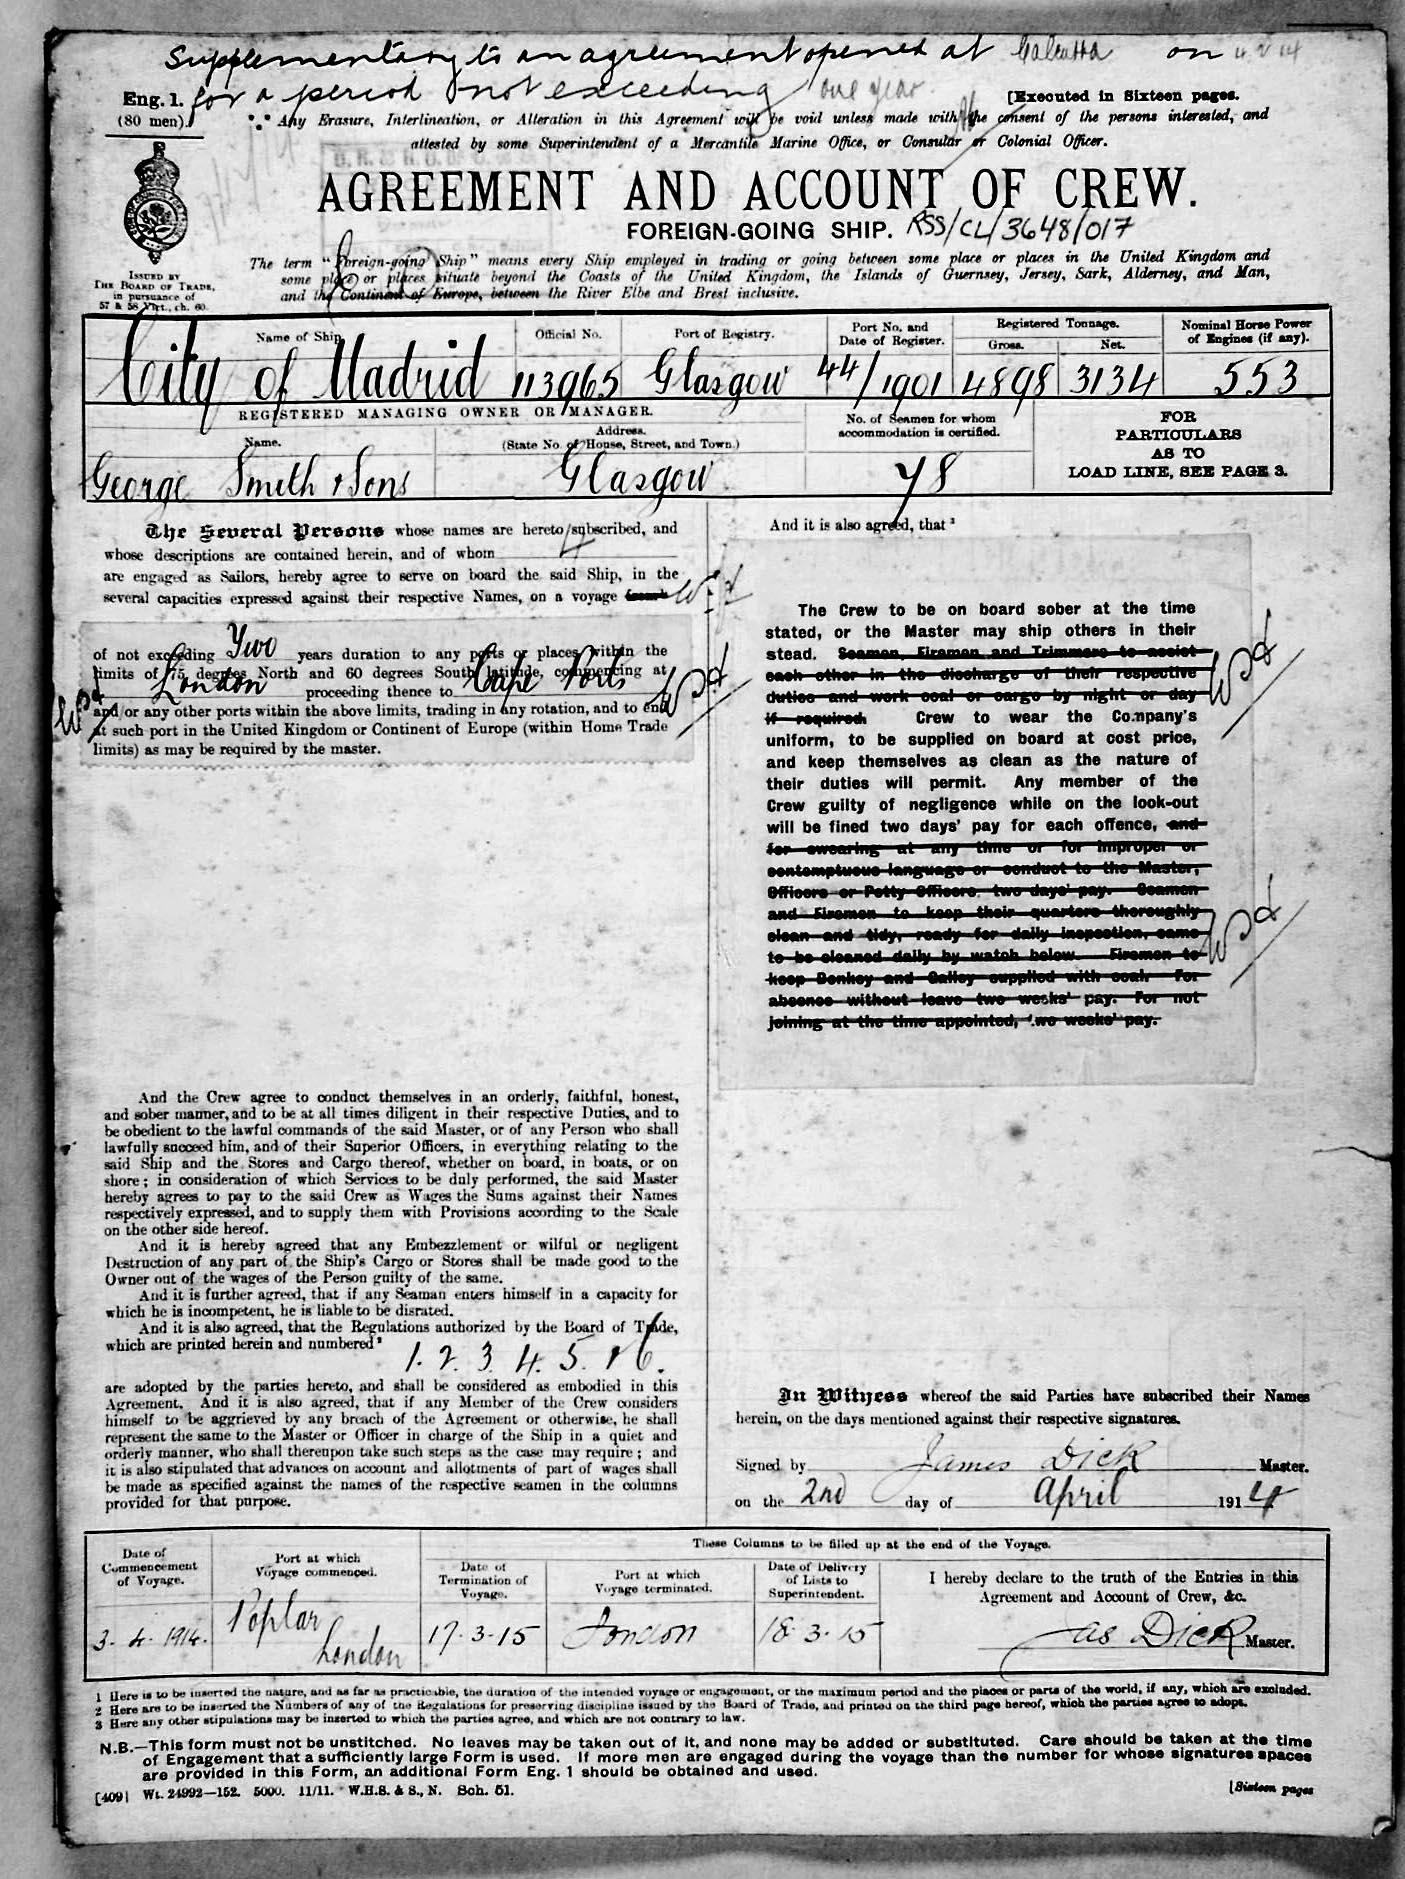 Supplementary to an agreement opened at Calcutta on 4.2.14
for a period not exceeding one year.
Eng. 1.
(80 men).
[Executed in Sixteen pages.
Any Erasure, Interlineation, or Alteration in this Agreement will be void unless made with the consent of the persons interested, and
attested by some Superintendent of a Mercantile Marine Office, or Consular or Colonial Officer.
AGREEMENT AND ACCOUNT OF CREW.
FOREIGN-GOING SHIP. RSS/CL/3648/017
ISSUED BY
THE BOARD OF TRADE,
in pursuance of
57 & 58 Vict., ch. 60.
The term "Foreign-going Ship" means every Ship employed in trading or going between some place or places in the United Kingdom and
some place or places situate beyond the Coasts of the United Kingdom, the Islands of Guernsey, Jersey, Sark, Alderney, and Man,
and the Continent of Europe, between the River Elbe and Brest inclusive.
Name of Ship.
Official No.
Port of Registry.
Port No. and
Date of Register.
Registered Tonnage.
Gross.
Net.
Nominal Horse Power
of Engines (if any).
City of Madrid 113965 Glasgow 44/1901 4898 3134 553
REGISTERED MANAGING OWNER OR MANAGER.
Name.
Address.
(State No. of House, Street, and Town.)
No. of Seamen for whom
accommodation is certified.
FOR
PARTICULARS
AS TO
LOAD LINE, SEE PAGE 3.
George Smith & Sons Glasgow 78
The Several Persons whose names are hereto subscribed, and
whose descriptions are contained herein, and of whom 4
are engaged as Sailors, hereby agree to serve on board the said Ship, in the
several capacities expressed against their respective Names, on a voyage from
of not exceeding Two years duration to any ports or places within the
limits of 75 degrees North and 60 degrees South latitude, commencing at
London proceeding thence to Cape Ports
and/or any other ports within the above limits, trading in any rotation, and to end
at such port in the United Kingdom or Continent of Europe (within Home Trade
limits) as may be required by the master.
And the Crew agree to conduct themselves in an orderly, faithful, honest,
and sober manner, and to be at all times diligent in their respective Duties, and to
be obedient to the lawful commands of the said Master, or of any Person who shall
lawfully succeed him, and of their Superior Officers, in everything relating to the
said Ship and the Stores and Cargo thereof, whether on board, in boats, or on
shore; in consideration of which Services to be duly performed, the said Master
hereby agrees to pay to the said Crew as Wages the Sums against their Names
respectively expressed, and to supply them with Provisions according to the Scale
on the other side hereof.
And it is hereby agreed that any Embezzlement or wilful or negligent
Destruction of any part of the Ship's Cargo or Stores shall be made good to the
Owner out of the wages of the Person guilty of the same.
And it is further agreed, that if any Seaman enters himself in a capacity for
which he is incompetent, he is liable to be disrated.
And it is also agreed, that the Regulations authorized by the Board of Trade,
which are printed herein and numbered²
1. 2. 3. 4. 5. & 6.
are adopted by the parties hereto, and shall be considered as embodied in this
Agreement. And it is also agreed, that if any Member of the Crew considers
himself to be aggrieved by any breach of the Agreement or otherwise, he shall
represent the same to the Master or Officer in charge of the Ship in a quiet and
orderly manner, who shall thereupon take such steps as the case may require; and
it is also stipulated that advances on account and allotments of part of wages shall
be made as specified against the names of the respective seamen in the columns
provided for that purpose.
And it is also agreed, that ³
The Crew to be on board sober at the time
stated, or the Master may ship others in their
stead. Seamen, Firemen and Trimmers to assist
each other in the discharge of their respective
duties and work coal or cargo by night or day
if required. Crew to wear the Company's
uniform, to be supplied on board at cost price,
and keep themselves as clean as the nature of
their duties will permit. Any member of the
Crew guilty of negligence while on the look-out
will be fined two days' pay for each offence, and
for swearing at any time or for improper or
contemptuous language or conduct to the Master,
Officers or Petty Officers, two days' pay. Seamen
and Firemen to keep their quarters thoroughly
clean and tidy, ready for daily inspection, same
to be cleaned daily by watch below. Firemen to
keep Donkey and Galley supplied with coal. For
absence without leave two weeks' pay. For not
joining at the time appointed, two weeks' pay.
In Witness whereof the said Parties have subscribed their Names
herein, on the days mentioned against their respective signatures.
Signed by James Dick Master.
on the 2nd day of April 1914
Date of
Commencement
of Voyage.
Port at which
Voyage commenced.
These Columns to be filled up at the end of the Voyage.
Date of
Termination of
Voyage.
Port at which
Voyage terminated.
Date of Delivery
of Lists to
Superintendent.
I hereby declare to the truth of the Entries in this
Agreement and Account of Crew, &c.
3. 4. 1914. Poplar London 17.3.15 London 18.3.15 Jas Dick Master.
1 Here is to be inserted the nature, and as far as practicable, the duration of the intended voyage or engagement, or the maximum period and the places or parts of the world, if any, which are excluded.
2 Here are to be inserted the Numbers of any of the Regulations for preserving discipline issued by the Board of Trade, and printed on the third page hereof, which the parties agree to adopt.
3 Here any other stipulations may be inserted to which the parties agree, and which are not contrary to law.
N.B.—This form must not be unstitched. No leaves may be taken out of it, and none may be added or substituted. Care should be taken at the time
of Engagement that a sufficiently large Form is used. If more men are engaged during the voyage than the number for whose signatures spaces
are provided in this Form, an additional Form Eng. 1 should be obtained and used.
[409] Wt. 24992—152. 5000. 11/11. W.H.S. & S., N. Sch. 51.
[Sixteen pages